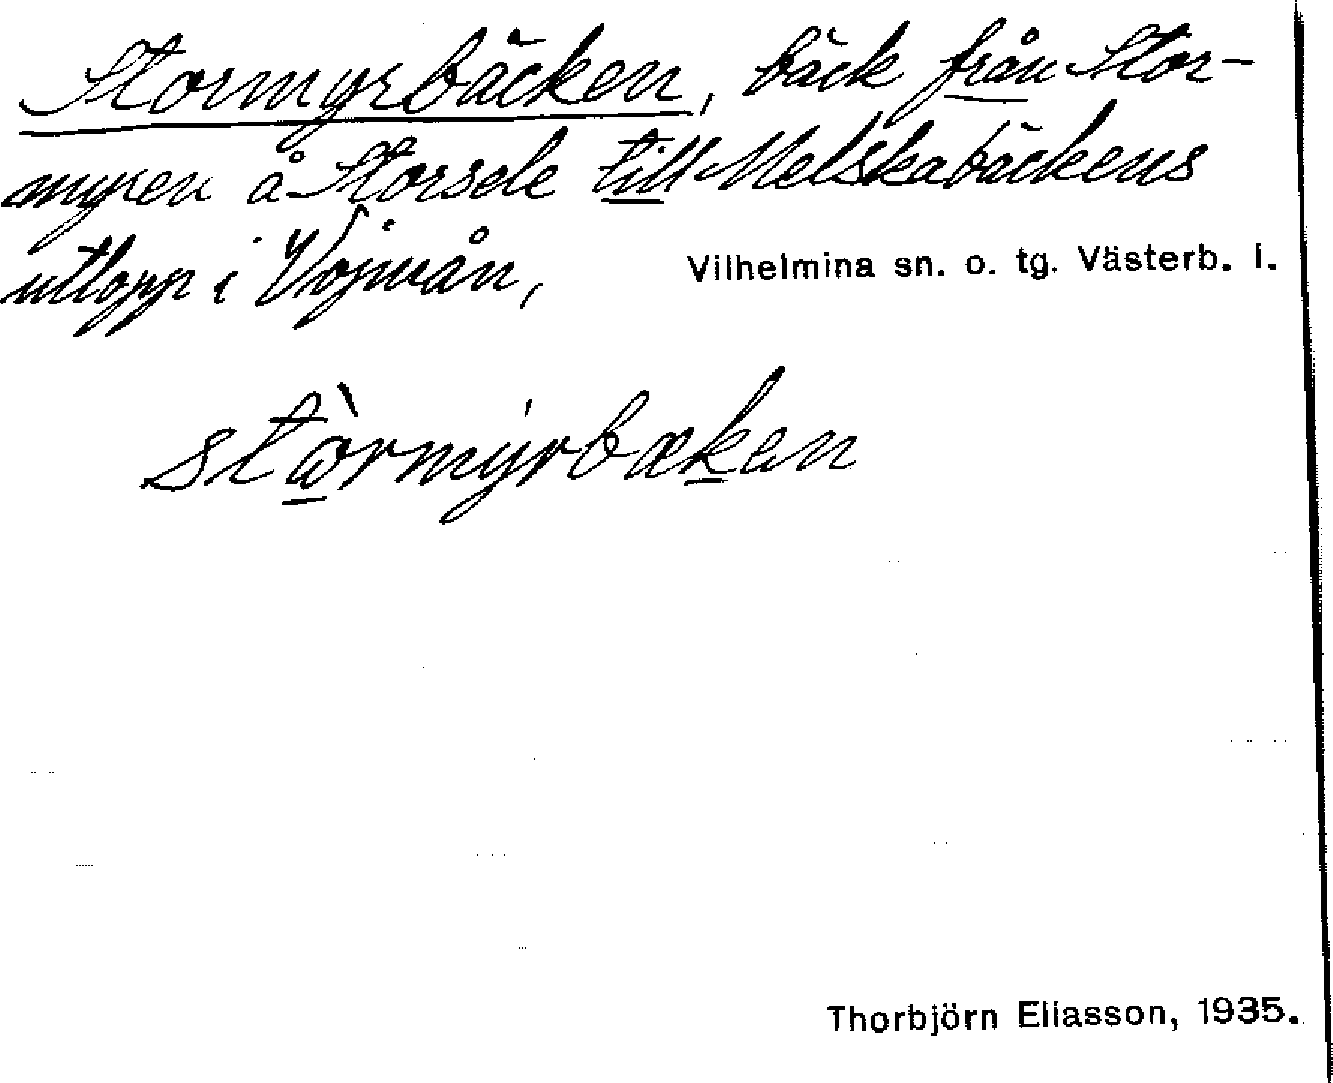 Stormyrbäcken, bäck från Stor-
myren å Storsele till Melskabäckens
utlopp i Vojmån,
Vilhelmina sn. o. tg. Västerb. l.
stòrmy̍rbækan
Thorbjörn Eliasson, 1935.